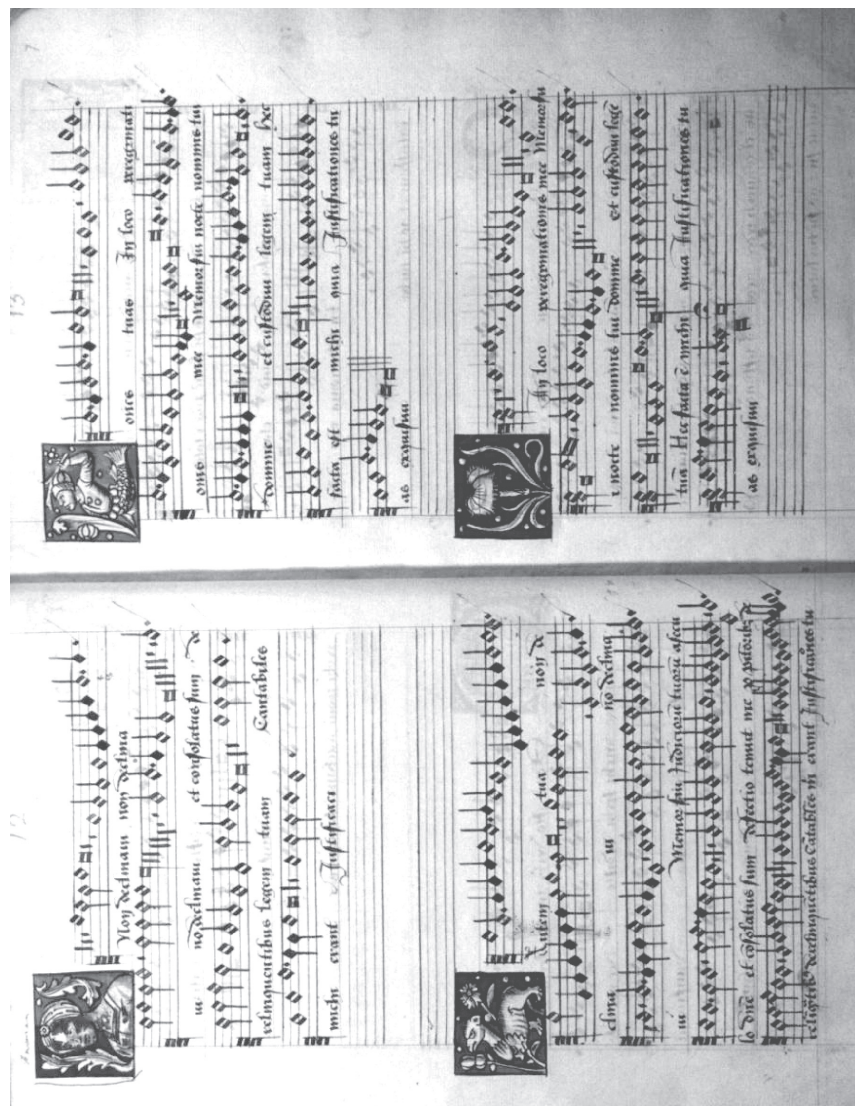 12
Non declinam non declina
ui no declinaui et consolatus sum de
relinquentibus legem tuam Cantabiles
michi erant Justificaci
Autem tua non de
clina ui no declina
ui Memor fui Judicioru tuoru a secu
lo dne et cosolatus sum defectio tenuit me de
Catables m erant tu
13
ones tuas In loco peregrinati
onis mee Memor fui nocte nominis tui
domine et custodiui legem tuam hec
facta est michi quia Justificationes tu
as exquisiui
In loco peregrinationis mee Memor fu
i nocte nominis tui domine et custodiui lege
tuā Hec facta ē michi quia Justificationes tu
as exquisiui